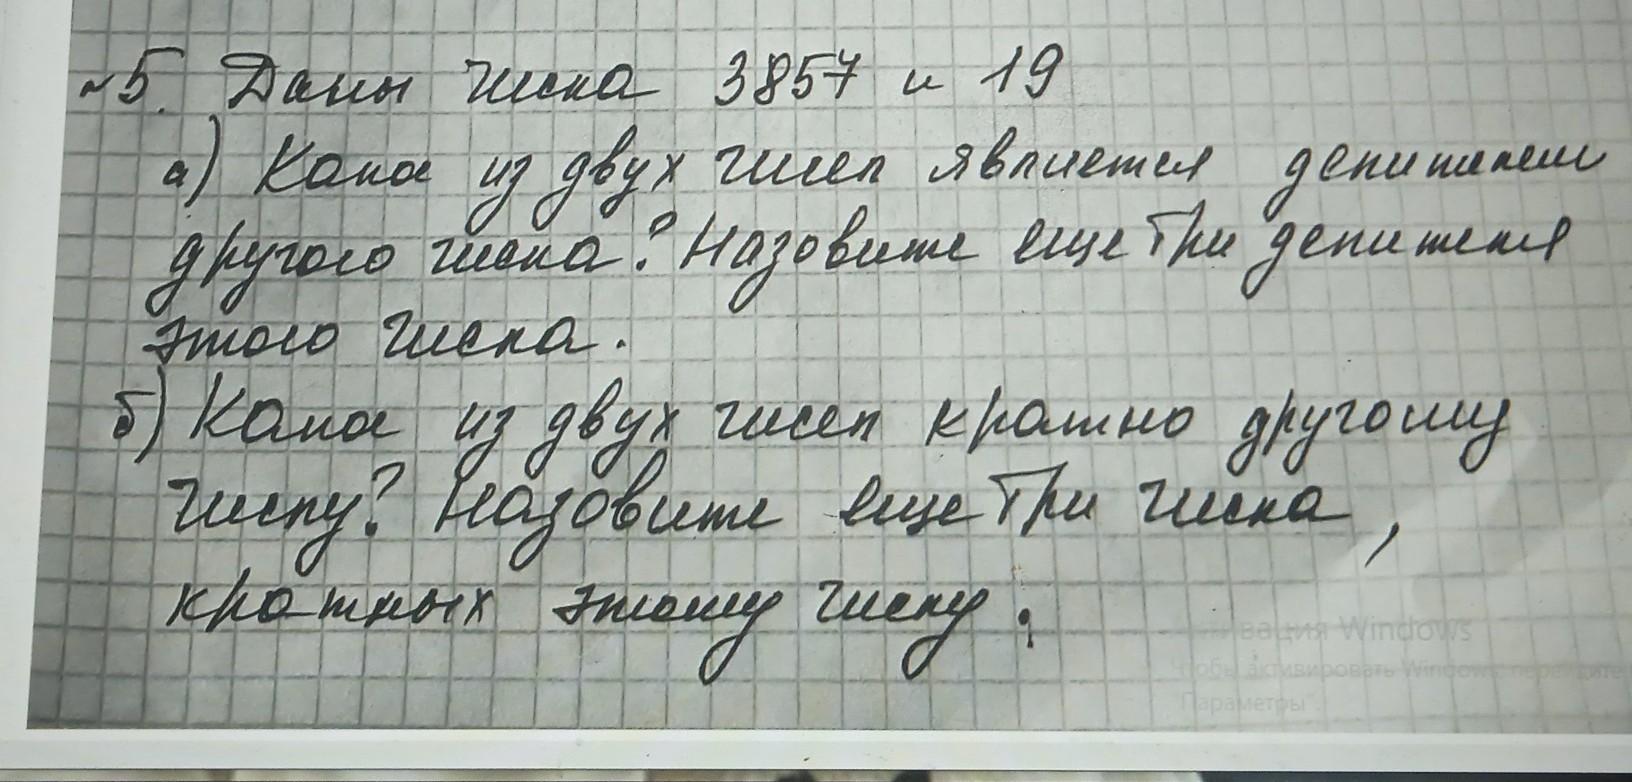 №5. Даны числа 3857 и 19
а) Како из двух чисел является делителем
другого числа? Назовите еще три делителя
этого числа.
б) Како из двух чисел кратно другому
числу? Назовите еще три числа,
кратных этому числу.
Активация Windows
Чтобы активировать Windows, перейдите
Параметры".